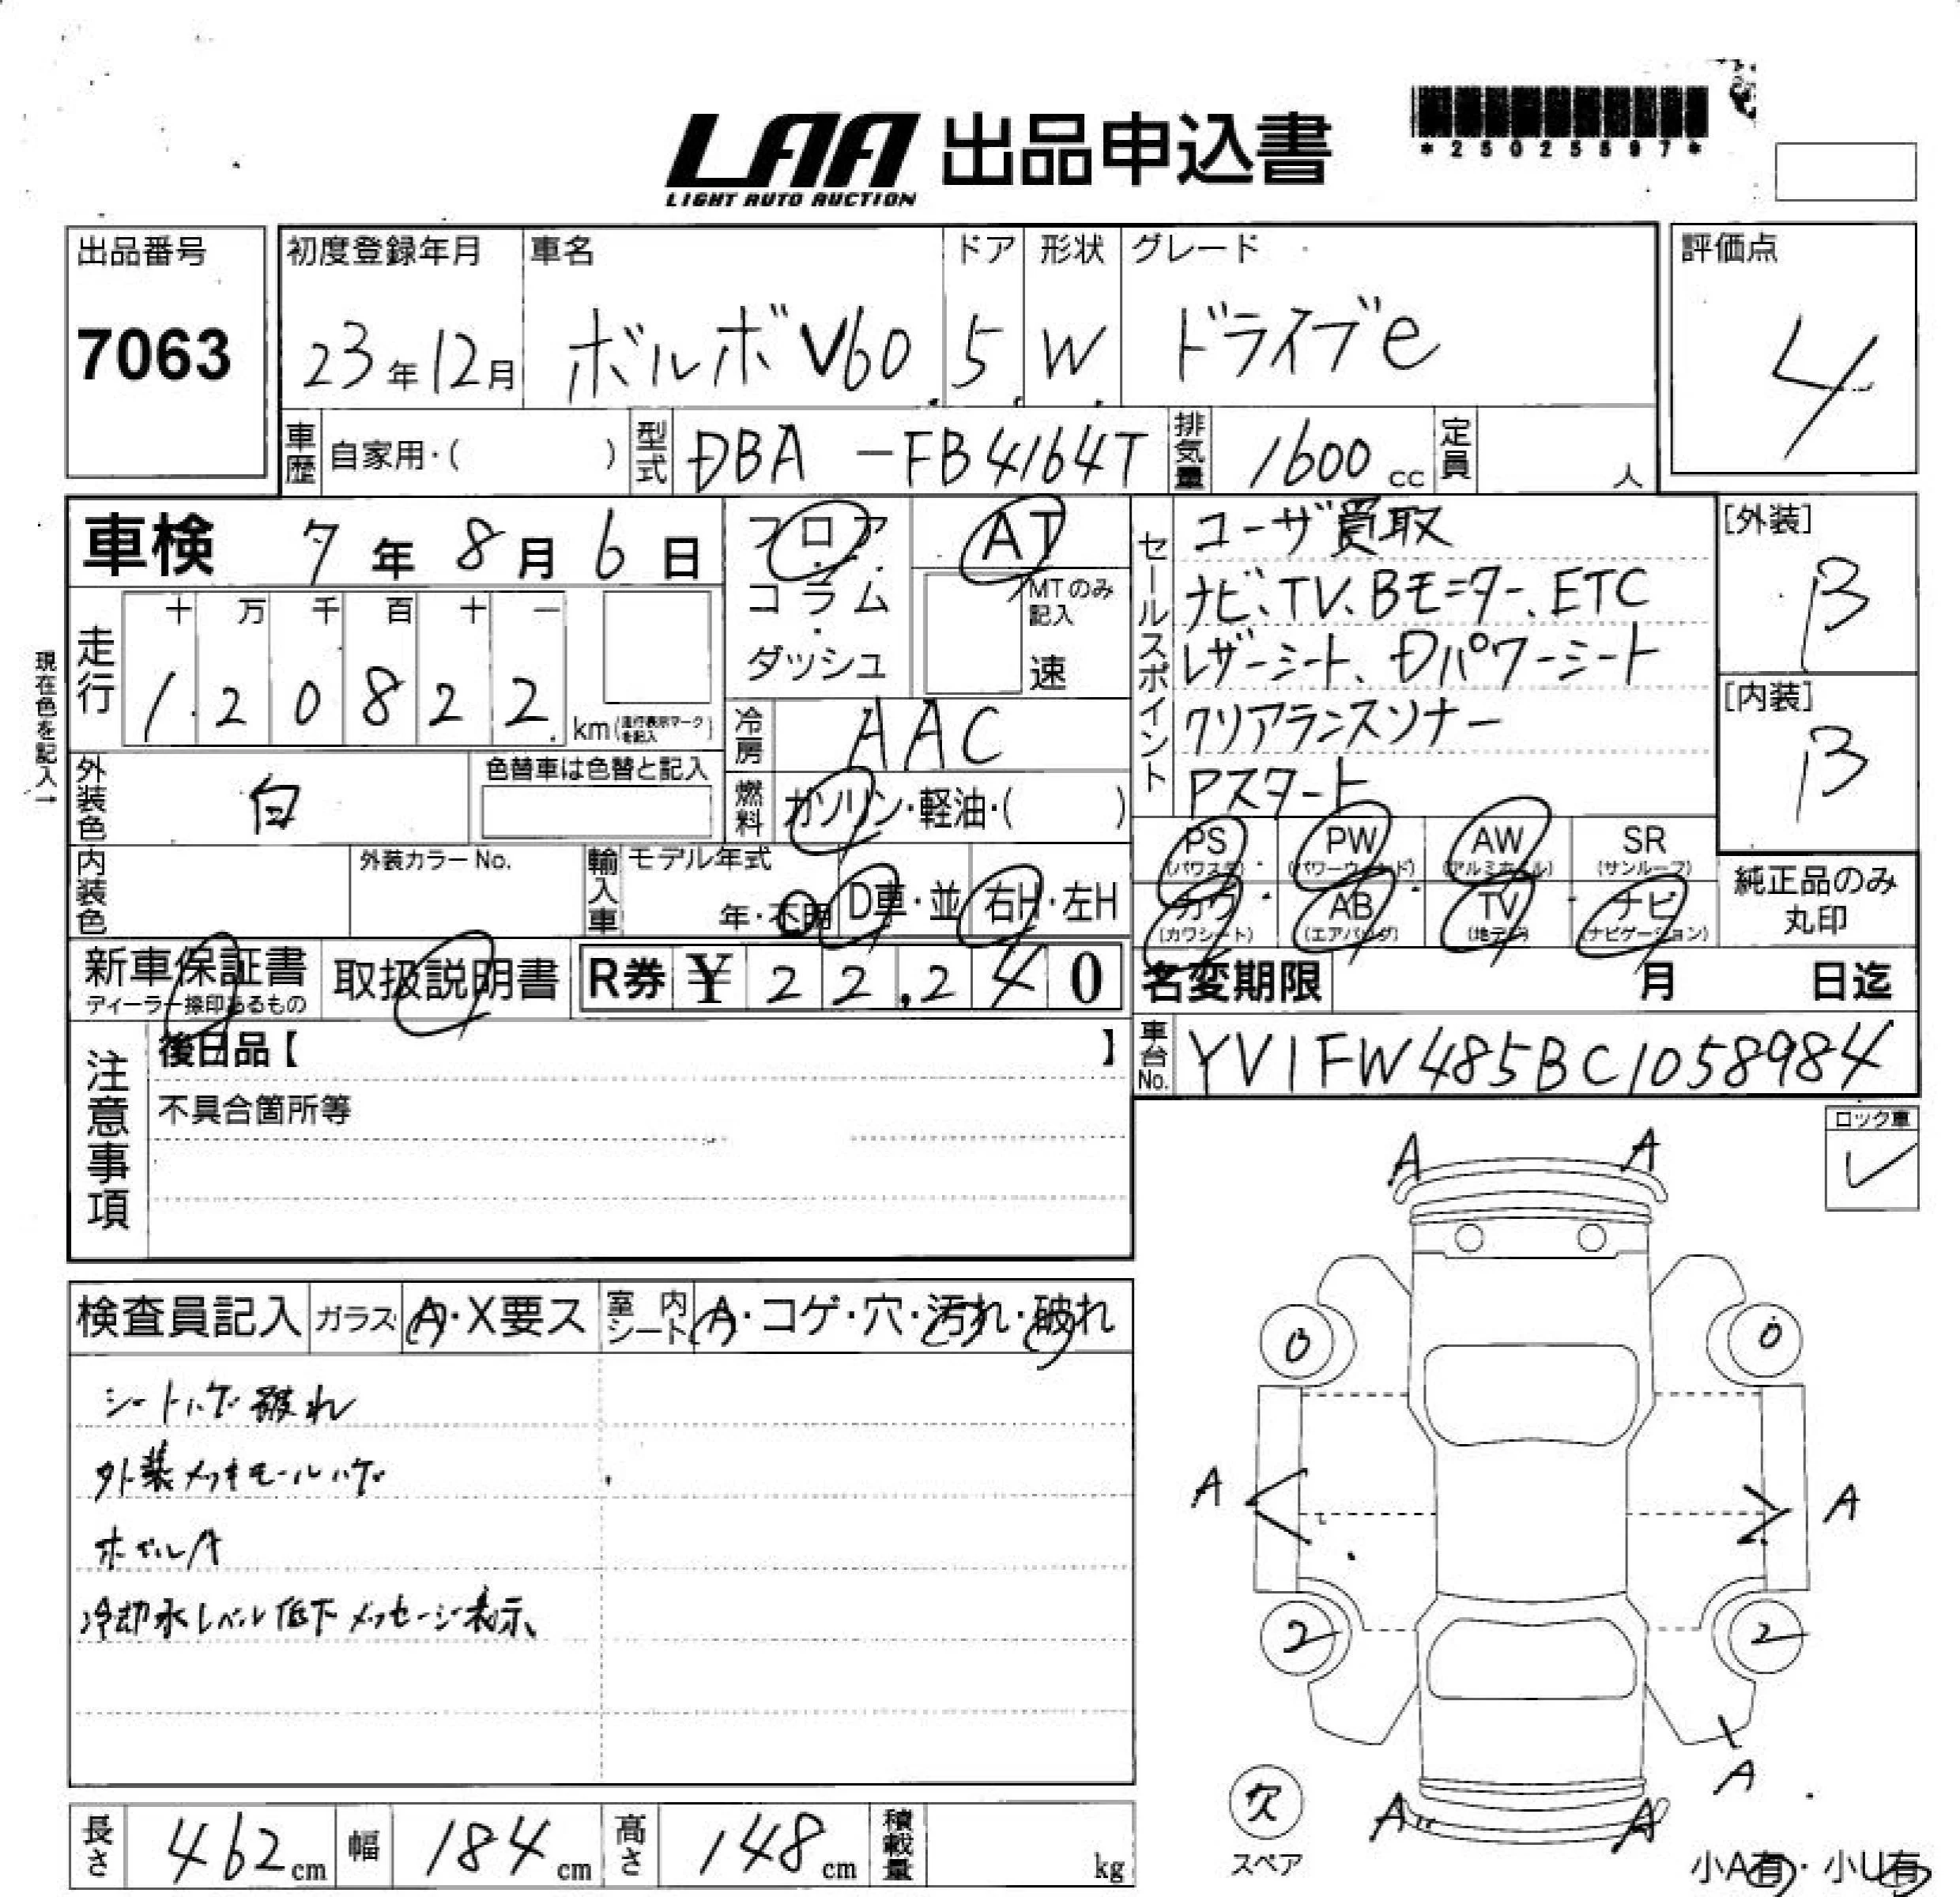 LAA 出品申込書
LIGHT AUTO AUCTION
*25025697*
出品番号
7063
初度登録年月
23年12月
車名
ボルボV60
ドア
5
形状
W
グレード
ドライブe
評価点
4
車歴 自家用・( )
型式 DBA-FB4164T
排気量 1600cc
定員 人
車検 7年8月6日
フロア・コラム・ダッシュ
AT
MTのみ記入
速
セールスポイント
ユーザ買取
ナビ、TV、Bモニター、ETC
レザーシート、Dパワーシート
クリアランスソナー
Pスタート
[外装]
B
[内装]
B
現在色を記入→
走行
十 万 千 百 十 一
1 2 0 8 2 2 km(走行表示マークを記入)
冷房 AAC
外装色 白
色替車は色替と記入
燃料 ガソリン・軽油・( )
内装色
外装カラーNo.
輸入車 モデル年式
年・不明 D車・並 右H・左H
PS (パワステ)
PW (パワーウィンド)
AW (アルミホイル)
SR (サンルーフ)
カワ (カワシート)
AB (エアバッグ)
TV (地デジ)
ナビ (ナビゲーション)
純正品のみ丸印
新車保証書
ディーラー捺印あるもの
取扱説明書
R券 ¥22,240
名変期限 月 日迄
車台No. YV1FW485BC1058984
注意事項
後日品【 】
不具合箇所等
ロック車
✓
検査員記入 ガラス A・X要ス 室内シート A・コゲ・穴・汚れ・破れ
シートハゲ破れ
外装メッキモールハゲ
ホイルA
冷却水レベル低下メッセージ表示
A A
0 0
A A
2 2
A
A A
欠
スペア
小A有・小U有
長さ 462cm 幅 184cm 高さ 148cm 積載量 kg